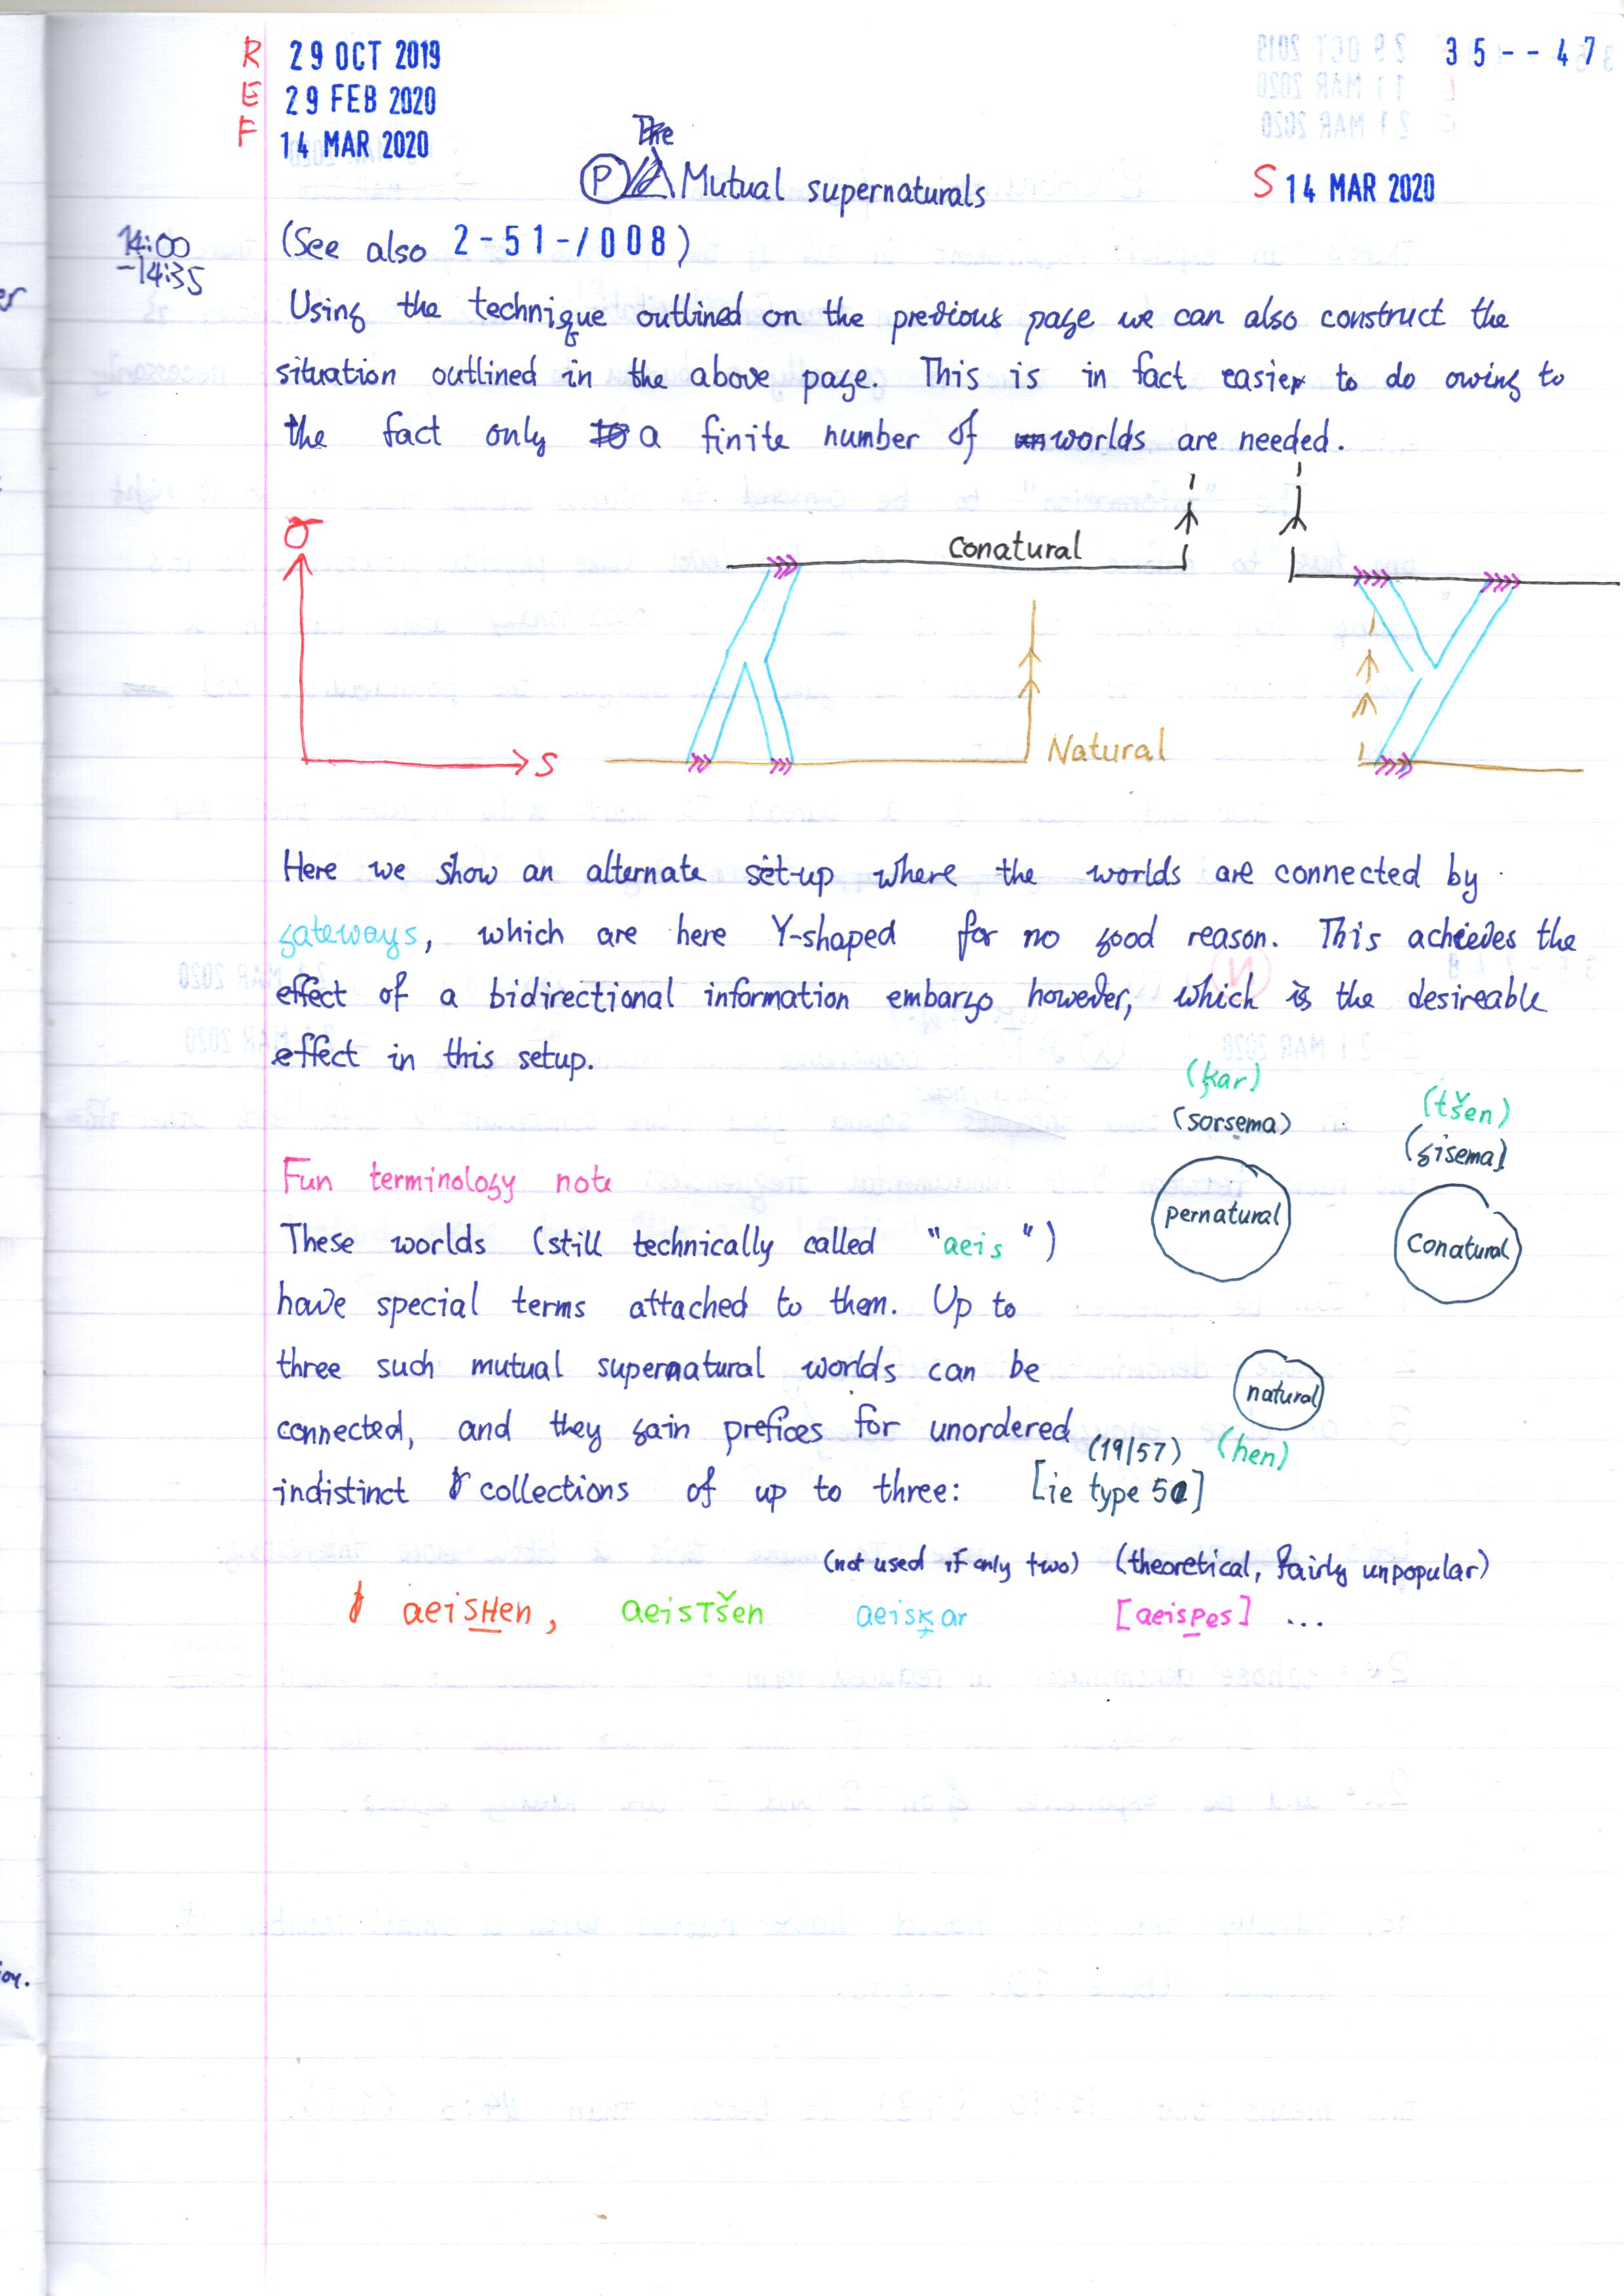 R 29 OCT 2019 35--47
E 29 FEB 2020
F 14 MAR 2020
The
P Mutual supernaturals S 14 MAR 2020
14:00
-14:35
(See also 2-51-/008)
Using the technique outlined on the previous page we can also construct the
situation outlined in the above page. This is in fact easier to do owing to
the fact only a finite number of worlds are needed.
σ
Conatural
S
Natural
Here we show an alternate set-up where the worlds are connected by
gateways, which are here Y-shaped for no good reason. This achieves the
effect of a bidirectional information embargo however, which is the desireable
effect in this setup.
(ķar)
(sorsema)
(tšen)
(gisema)
pernatural
Conatural
natural
(hen)
Fun terminology note
These worlds (still technically called "aeis")
have special terms attached to them. Up to
three such mutual supernatural worlds can be
connected, and they gain prefices for unordered (19/57)
indistinct collections of up to three: [ie type 5a]
(not used if only two) (theoretical, fairly unpopular)
aeisHen, aeisTšen aeisķar [aeisPes] ...